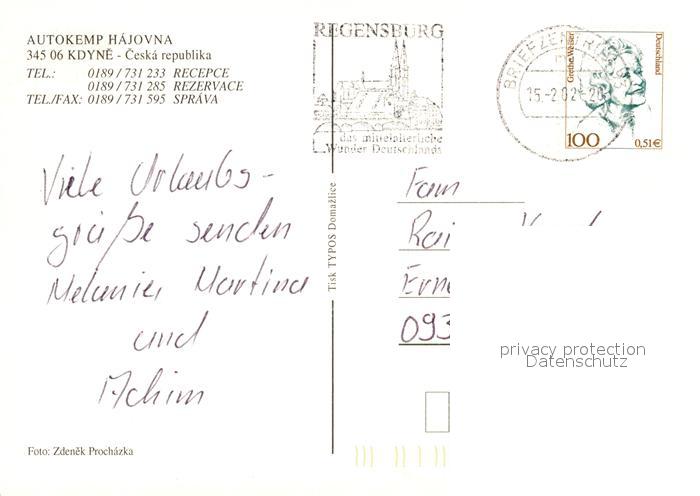 AUTOKEMP HÁJOVNA
345 06 KDYNĚ - Česká republika
TEL.: 0189 / 731 233 RECEPCE
0189 / 731 285 REZERVACE
TEL./FAX: 0189 / 731 595 SPRÁVA
REGENSBURG
das mittelalterliche
Wunder Deutschlands
BRIEFZENTRUM
15.-2.02
Grethe Weiser
Deutschland
100
0,51€
Viele Urlaubs-
grüße senden
Melanie, Martina
und
Achim
Tisk TYPOS Domažlice
Fam
Rai
Erne
093
privacy protection
Datenschutz
Foto: Zdeněk Procházka